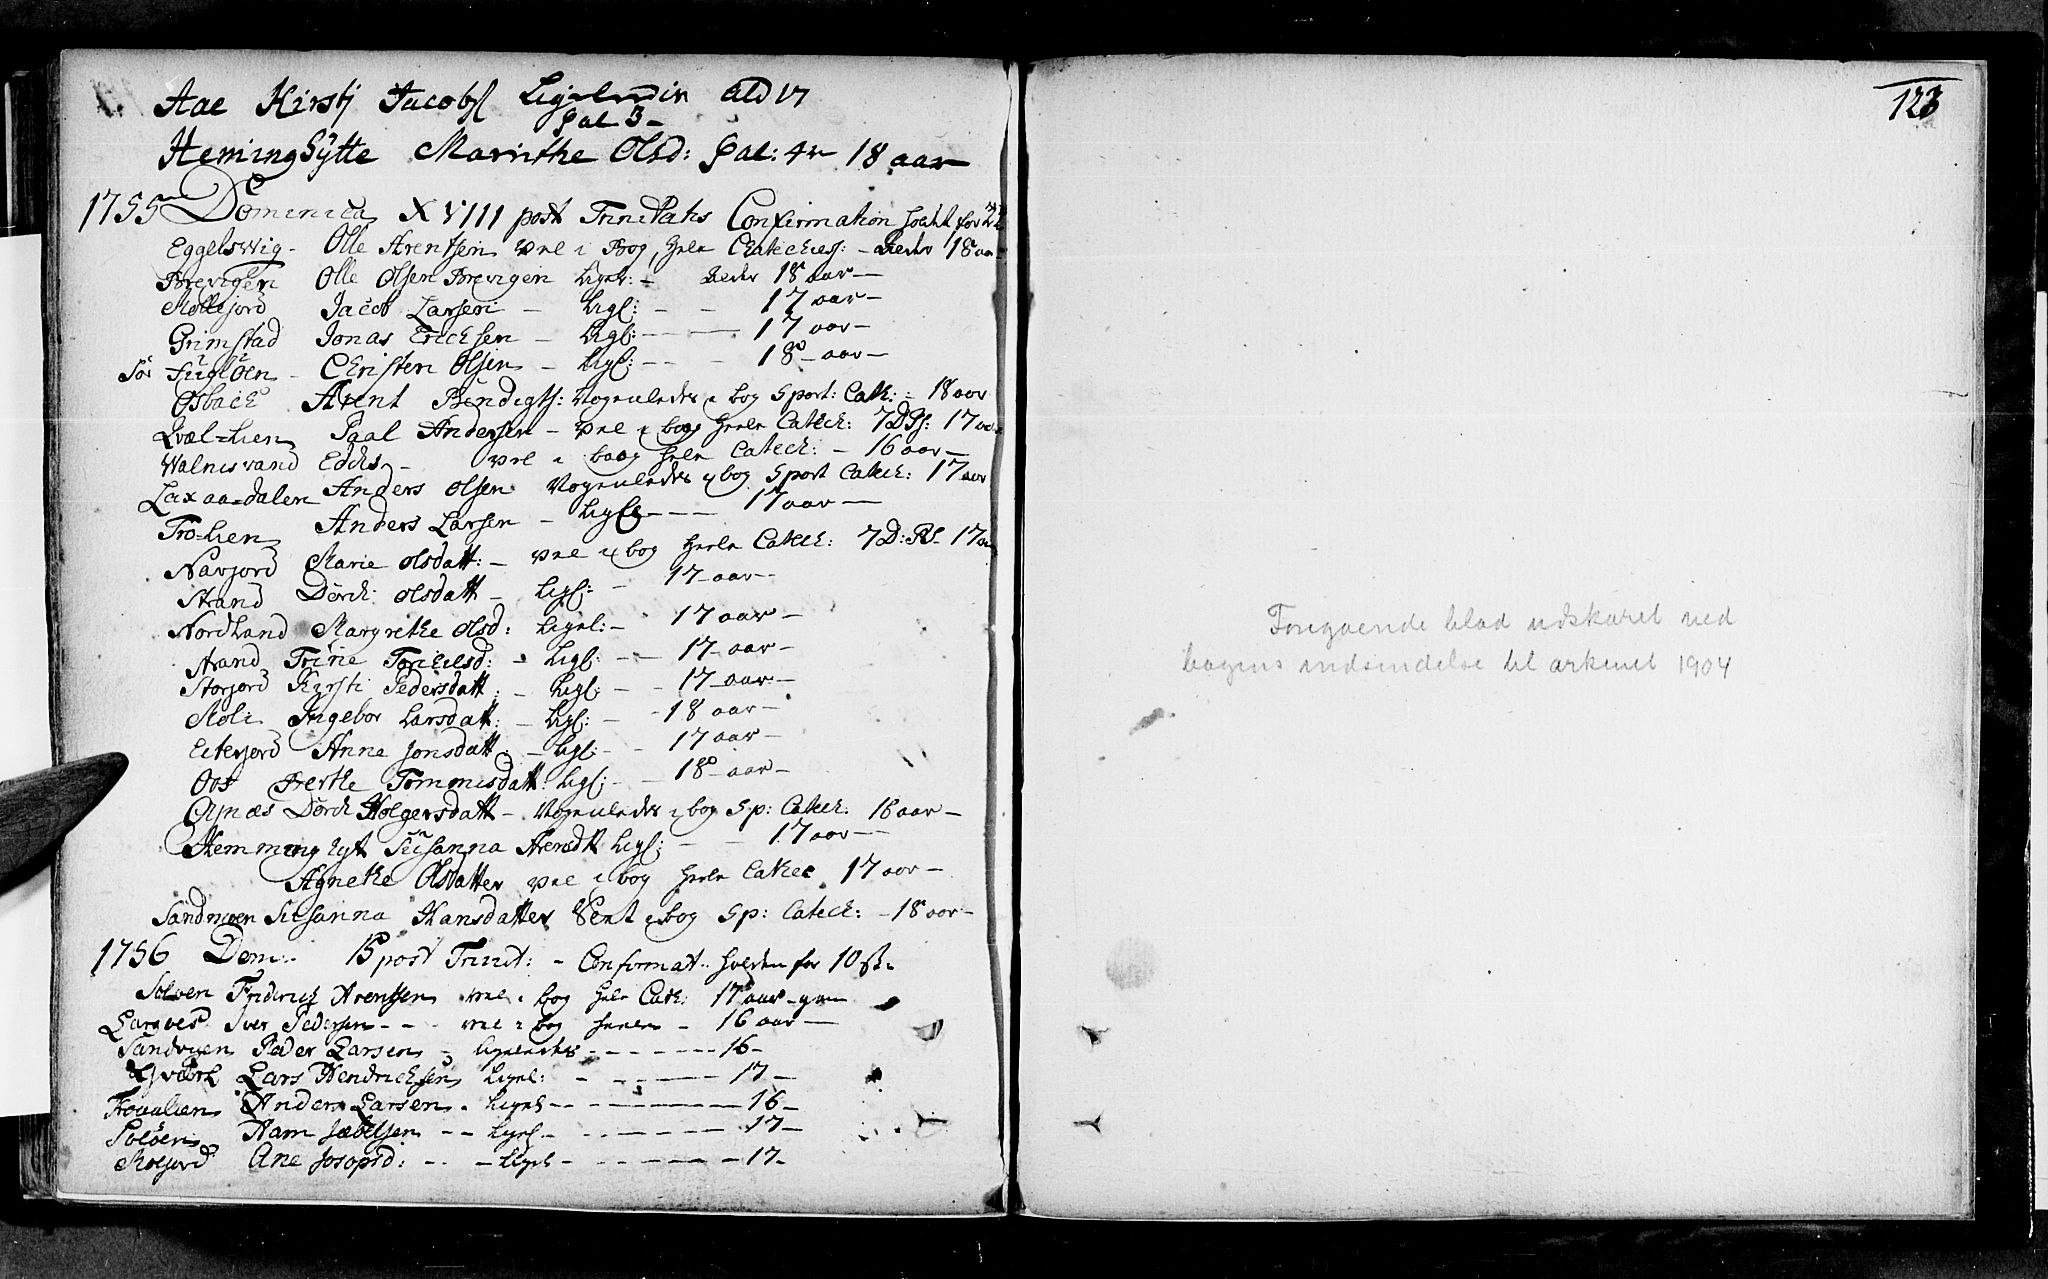 Aae Kirsti Jacobs Ligeledis æld 17
Hemingsÿtte Marithe Olsd: Psal: 4r 18 aar
Psal 3 -
1755 Dominica XVIII post Trinitatis Confirmation holdt for 22
Eggelswig - Olle Arentsen vel i Bog, heele Chatechiss: - alder 18 aar
Brevigen Olle Olsen Brevigen Ligel: - alder 18 aar -
Jacob Larsen - Ligl: - - 17 aar -
Grimstad Jonas Ericksen - Ligl: - - - 17 aar -
Sör Fügløen - Christen Olsen - Ligl: - - - 18 - aar -
Osback Arent Bendigts: Nogenledes i bog Sport: Cath: - 18 aar
Qvæl-Lien Paal Andersen - vel i bog heele Catech: 7 D Ps: 17 aar
Walnisvand Eddis - vel i boog heele Catech: - 16 aar -
Laxaa-dalen Anders Olsen Nogenledes i bog Sport Catech: 17 aar
Tro-Lien Anders Larsen - Ligl - - - 17 aar -
Navjord Marie Olsdatt: - vel i bog heele Catech: 7 D: Ps - 17 a
Strand Dorch: Olsdatt - Ligl: - 17 - aar -
Nordland Margrethe Olsd: Ligel: - 17 aar -
Strand Trine Torchelsd: - Ligl: - - 17 - aar -
Storjord Kirsti Pedersdatt: - Ligl: - - 17 - aar -
Moli Ingebor Larsdatt: - Ligl: - - 18 aar -
Eiterjord Anne Jonsdatt - Ligl: - - 17 aar -
Berthe Tommisdatt: Ligl: - - 18 - aar -
Dorch Holgersdatt - Nogenledes i bog Sp: Catech: 18 aar -
Hemming Sÿt Süsanna Arendtt Ligl: - - 17 aar -
Agnethe Olsdatter vel i bog heele Catec 17 aar -
Sandmoen Süsanna Hansdatter Vent i bog Sp: Catech: - 18 aar -
1756 Dom: 15 post Trinit: - Confirmat: holden for 10 st.
Solöen Friderich Arentsen vel i bog hele Cat: 17 aar gam
Iver Pedersen - - - vel i bog heele - 16 aar -
Sandmoen Peder Larsen - ligeledes - - - - - 16 -
Lars Hendricksen Ligel: - - - - - 17 -
Troeulien Anders Larsen - Ligel - - - - - 16 -
Soløen Ham Jacobsen - - Ligel - - - - - 17 -
Moejord Ane Josepsd: - - - Ligel - - - - 17 -
123
Foregaaende blad udskaaret ved
bogens indsendelse til arkivet 1904